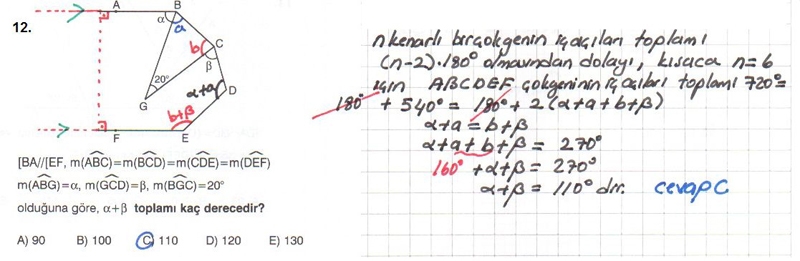 12.
A
B
α
a
b
C
β
20°
G
α+a
D
b+β
F
E
[BA//[EF, m(ABC)=m(BCD)=m(CDE)=m(DEF)
m(ABG)=α, m(GCD)=β, m(BGC)=20°
olduğuna göre, α+β toplamı kaç derecedir?
A) 90 B) 100 C) 110 D) 120 E) 130
n kenarlı bir çokgenin iç açıları toplamı
(n-2).180° olmasından dolayı, kısaca n=6
için ABCDEF çokgeninin iç açıları toplamı 720°=
180° + 540° = 180° + 2(α+a+b+β)
α+a = b+β
α+a+b+β = 270°
160° +α+β = 270°
α+β = 110° dir. cevap C